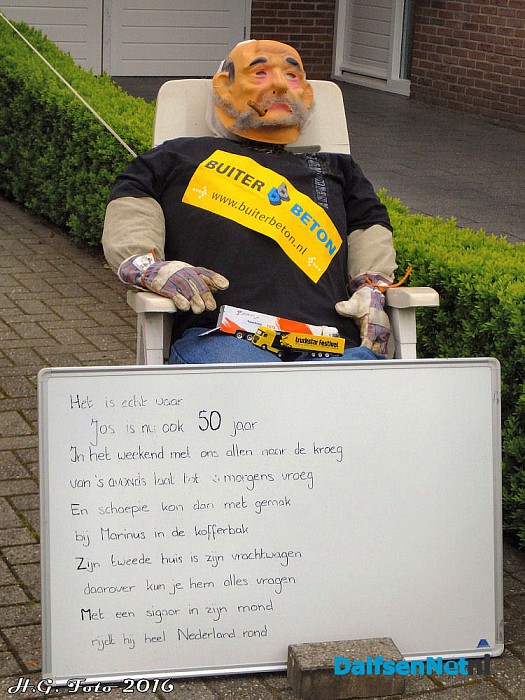 BUITER BETON
www.buiterbeton.nl
truckstar Festival
Het is echt waar
Jos is nu ook 50 jaar
In het weekend met ons allen naar de kroeg
van 's avonds laat tot 's morgens vroeg
En schoepie kan dan met gemak
bij Marinus in de kofferbak
Zijn tweede huis is zijn vrachtwagen
daarover kun je hem alles vragen
Met een sigaar in zijn mond
rijdt hij heel Nederland rond
DalfsenNet.nl
H.G. Foto 2016